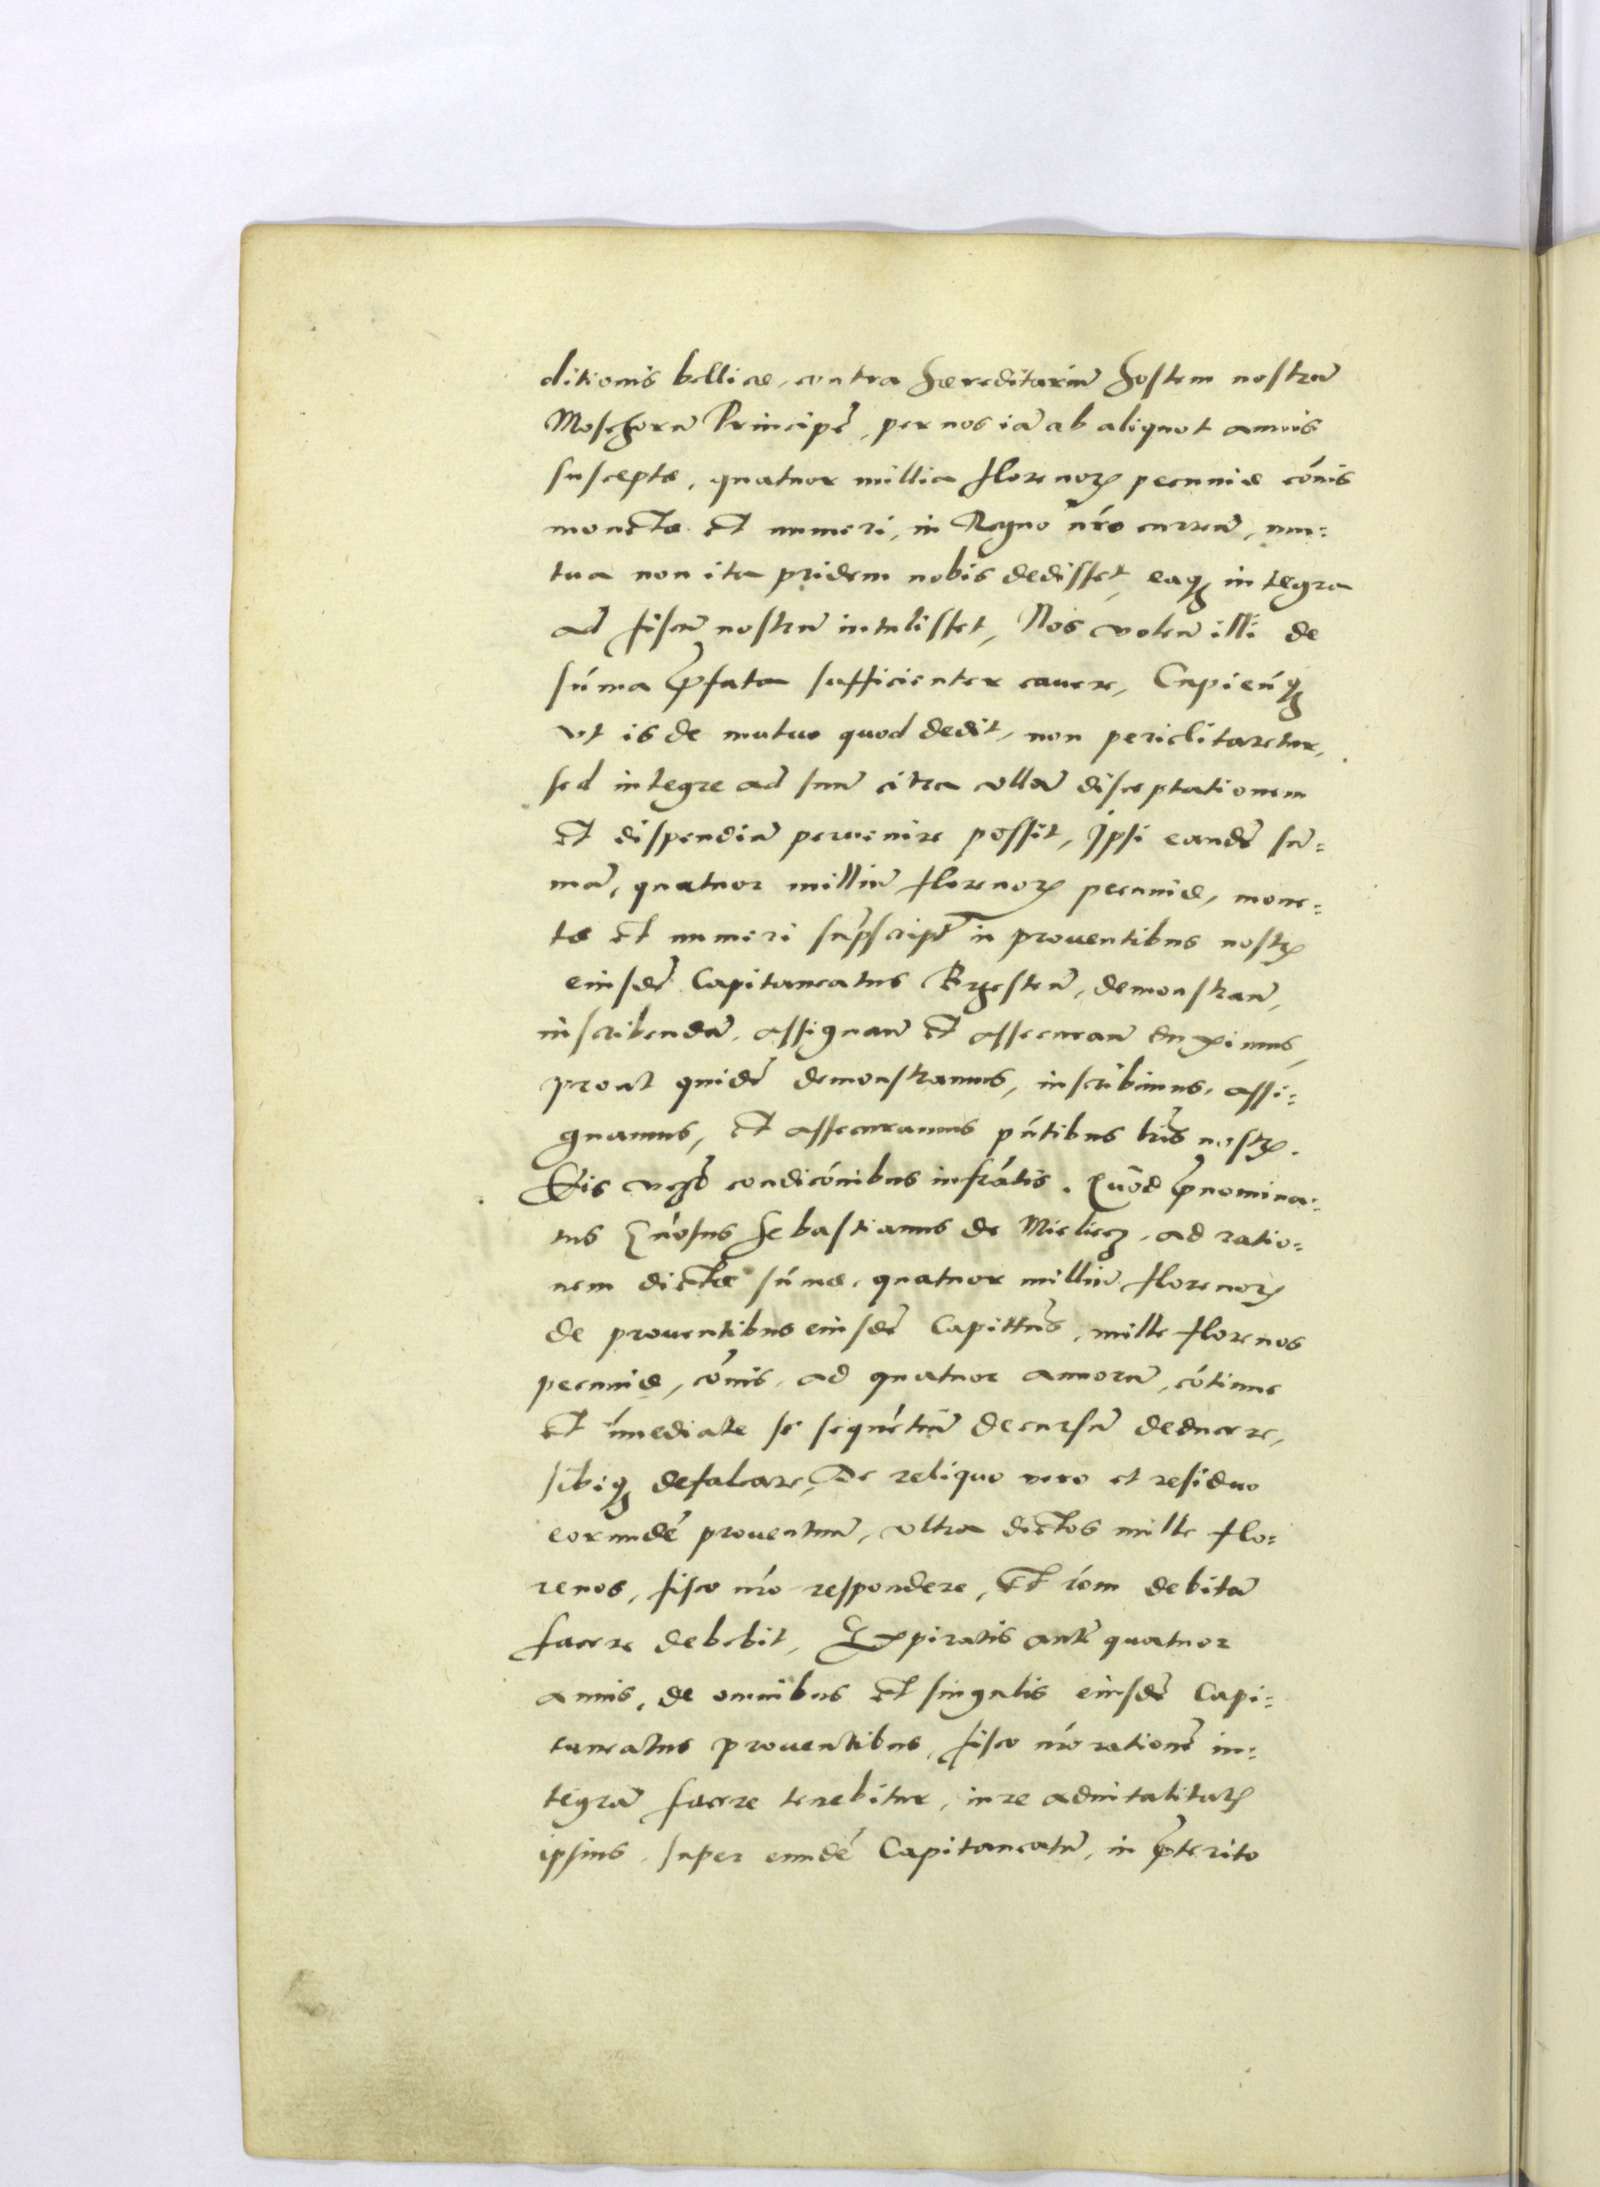 ditionis bellicæ, contra hæreditariũ hostem nostrũ
Moschorũ Principẽ, per nos iã ab aliquot annis
susceptę, quatuor millia florenorꝝ pecunię cõis
monetę et numeri, in Regno nr̃o curreñ, mu=
tua non ita pridem nobis dedisset, eaqꝫ integra
ad fiscũ nostrũ intulisset, Nos voleñ illi de
sum̃a p̃fata sufficienter cavere, Cupieñqꝫ
vt is de mutuo quod dedit, non periclitaretur,
sed integre ad suũ citra vllã disceptationem
et dispendiũ pervenire possit, Ipsi eandẽ sũ=
mã, quatuor milliũ florenorꝝ pecunię, mone=
tę et numeri sup̃script̃ in proventibus nostrꝝ
eiusdẽ Capitaneatus Brzesteñ, demonstrañ,
inscribendã, assignañ et assecurañ duximus,
prout quidẽ demonstramus, inscribimus, assi=
gnamus, et assecuramus pñtibus lr̃is nostrꝝ.
His vero condicõnibus infrãtis. Quod p̃nomina=
tus Gñosus Sebastianus de Mieliecz, ad ratio=
nem dictę sum̃ę, quatuor milliũ florenorꝝ
de proventibus eiusdẽ Capittũs, mille florenos
pecunię, cõis, ad quatuor annorũ, cõtinue
et im̃ediate se sequentiũ decursũ deducere,
sibiqꝫ defalcare, De reliquo vero et residuo
eorundẽ proventuũ, vltra dictos mille flo=
renos, fisco nr̃o respondere, et rõem debitã
facere debebit, Expiratis aut̃ quatuor
annis, de omnibus et singulis eiusdẽ Capi=
taneatus proventibus, fisco nr̃o rationẽ in=
tegrã facere tenebitur, iure advitalitatꝝ
ipsius, super eundẽ Capitaneatũ, in p̃terito